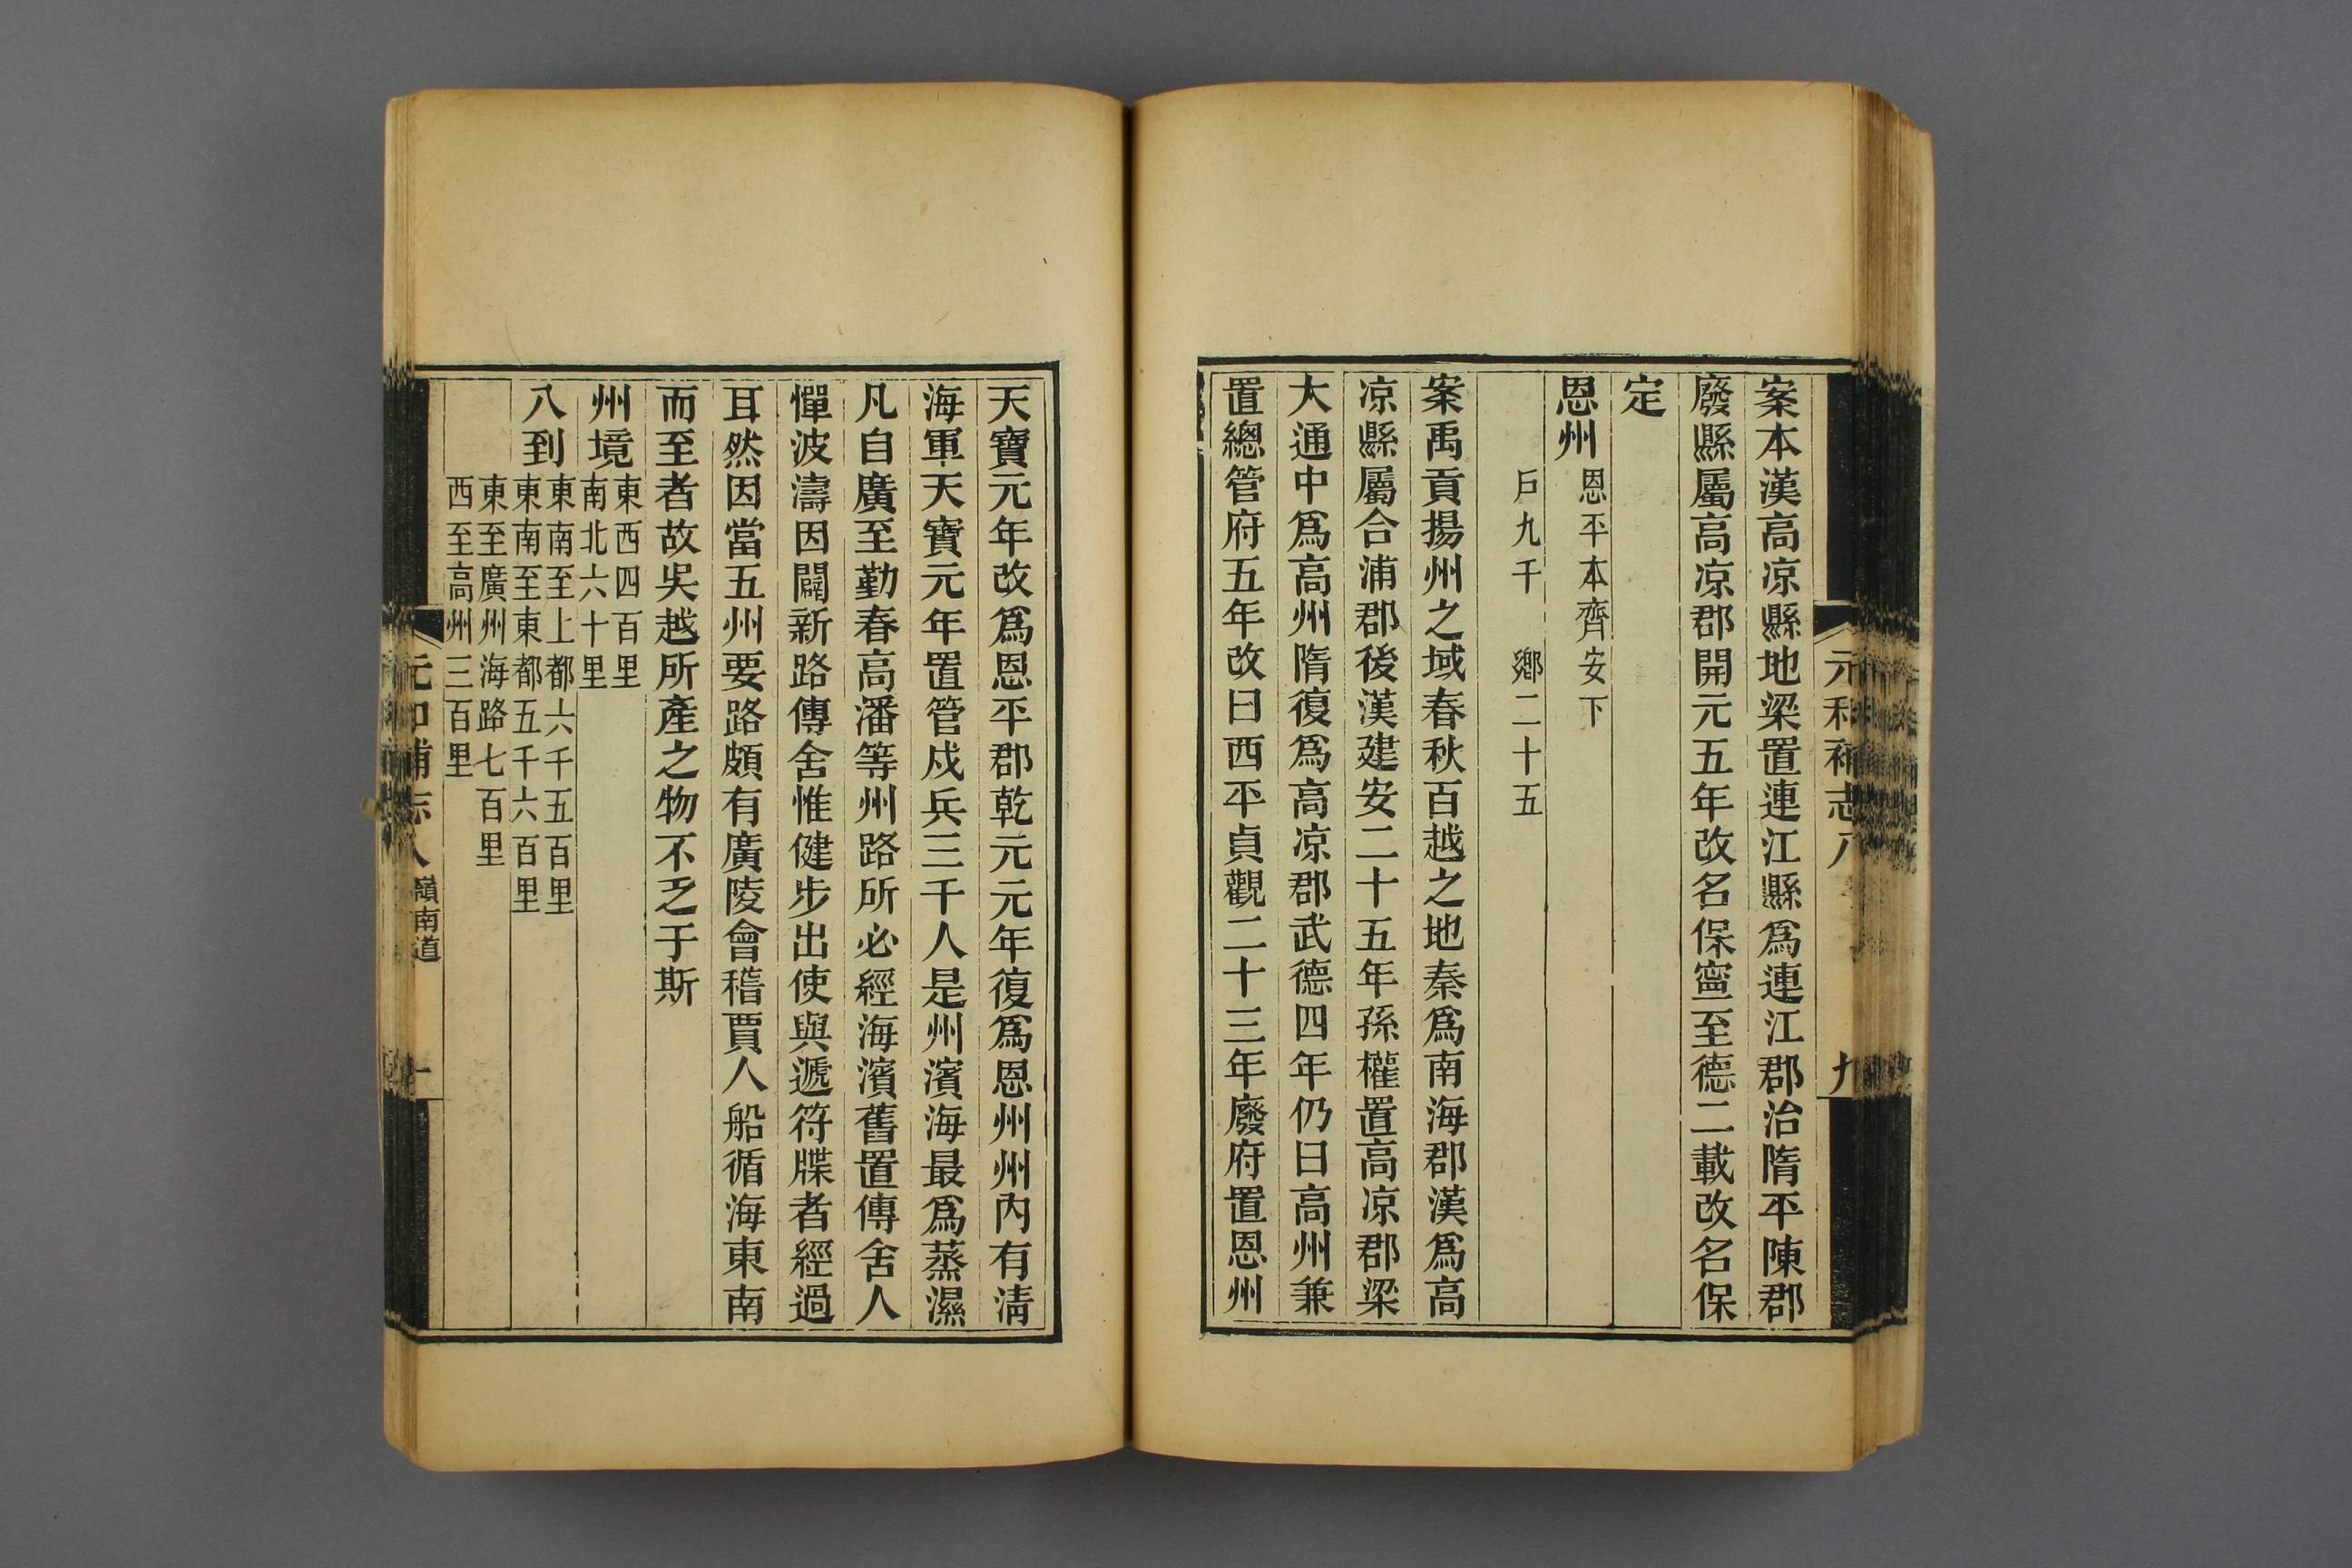 元和補志八
九
案本漢高凉縣地梁置連江縣爲連江郡治隋平陳郡
廢縣屬高凉郡開元五年改名保寧至德二載改名保
定
恩州恩平本齊安下
戶九千 鄉二十五
案禹貢揚州之域春秋百越之地秦爲南海郡漢爲高
凉縣屬合浦郡後漢建安二十五年孫權置高凉郡梁
大通中爲高州隋復爲高凉郡武德四年仍曰高州兼
置總管府五年改曰西平貞觀二十三年廢府置恩州
天寶元年改爲恩平郡乾元元年復爲恩州州內有清
海軍天寶元年置管戍兵三千人是州濱海最爲蒸濕
凡自廣至勤春高潘等州路所必經海濱舊置傳舍人
憚波濤因闢新路傳舍惟健步出使與遞符牒者經過
耳然因當五州要路頗有廣陵會稽賈人船循海東南
而至者故吳越所產之物不乏于斯
州境東西四百里
南北六十里
八到東南至上都六千五百里
東南至東都五千六百里
東至廣州海路七百里
西至高州三百里
元和補志八
嶺南道